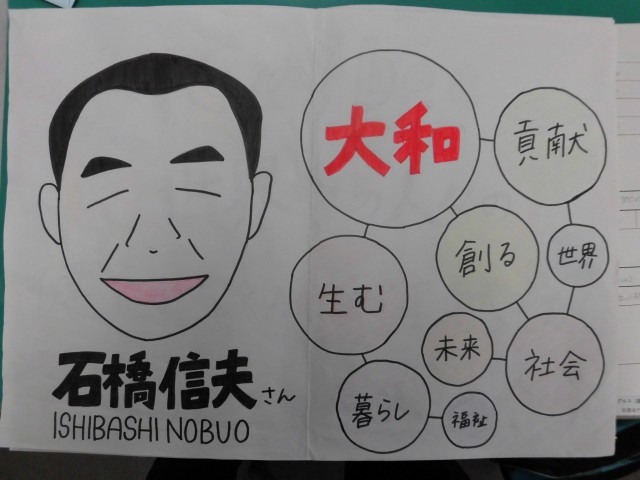 石橋信夫さん
ISHIBASHI NOBUO
大和
貢献
創る
世界
生む
未来
社会
暮らし
福祉